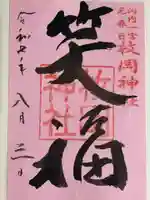 河内一宮
元春日 枚岡神社
笑福
枚岡
神社
令和七年 八月二日